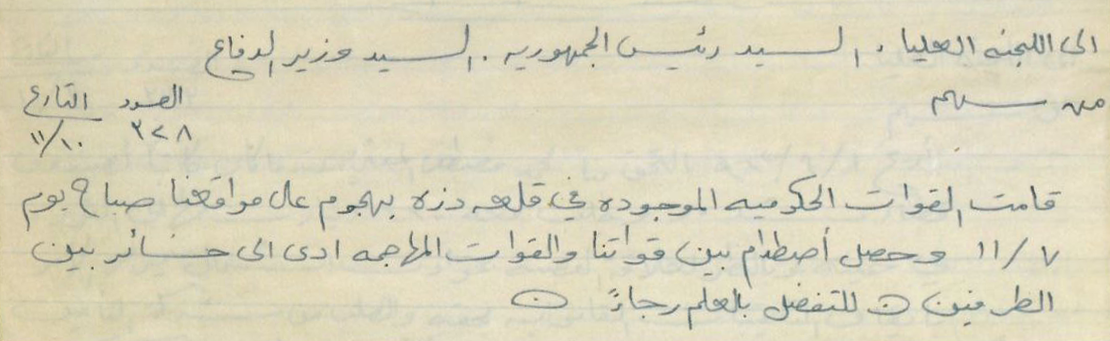 الى اللجنه العليا . السيد رئيس الجمهوريه . السيد وزير الدفاع
من سهم
العدد التاريخ
٣٢٨ ١١/١٠
قامت القوات الحكوميه الموجوده في قلعه دزه بهجوم على مواقعنا صباح يوم
١١/٧ وحصل أصطدام بين قواتنا والقوات المهاجمه ادى الى خسائر بين
الطرفين ٥ للتفضل بالعلم رجاءً ٥